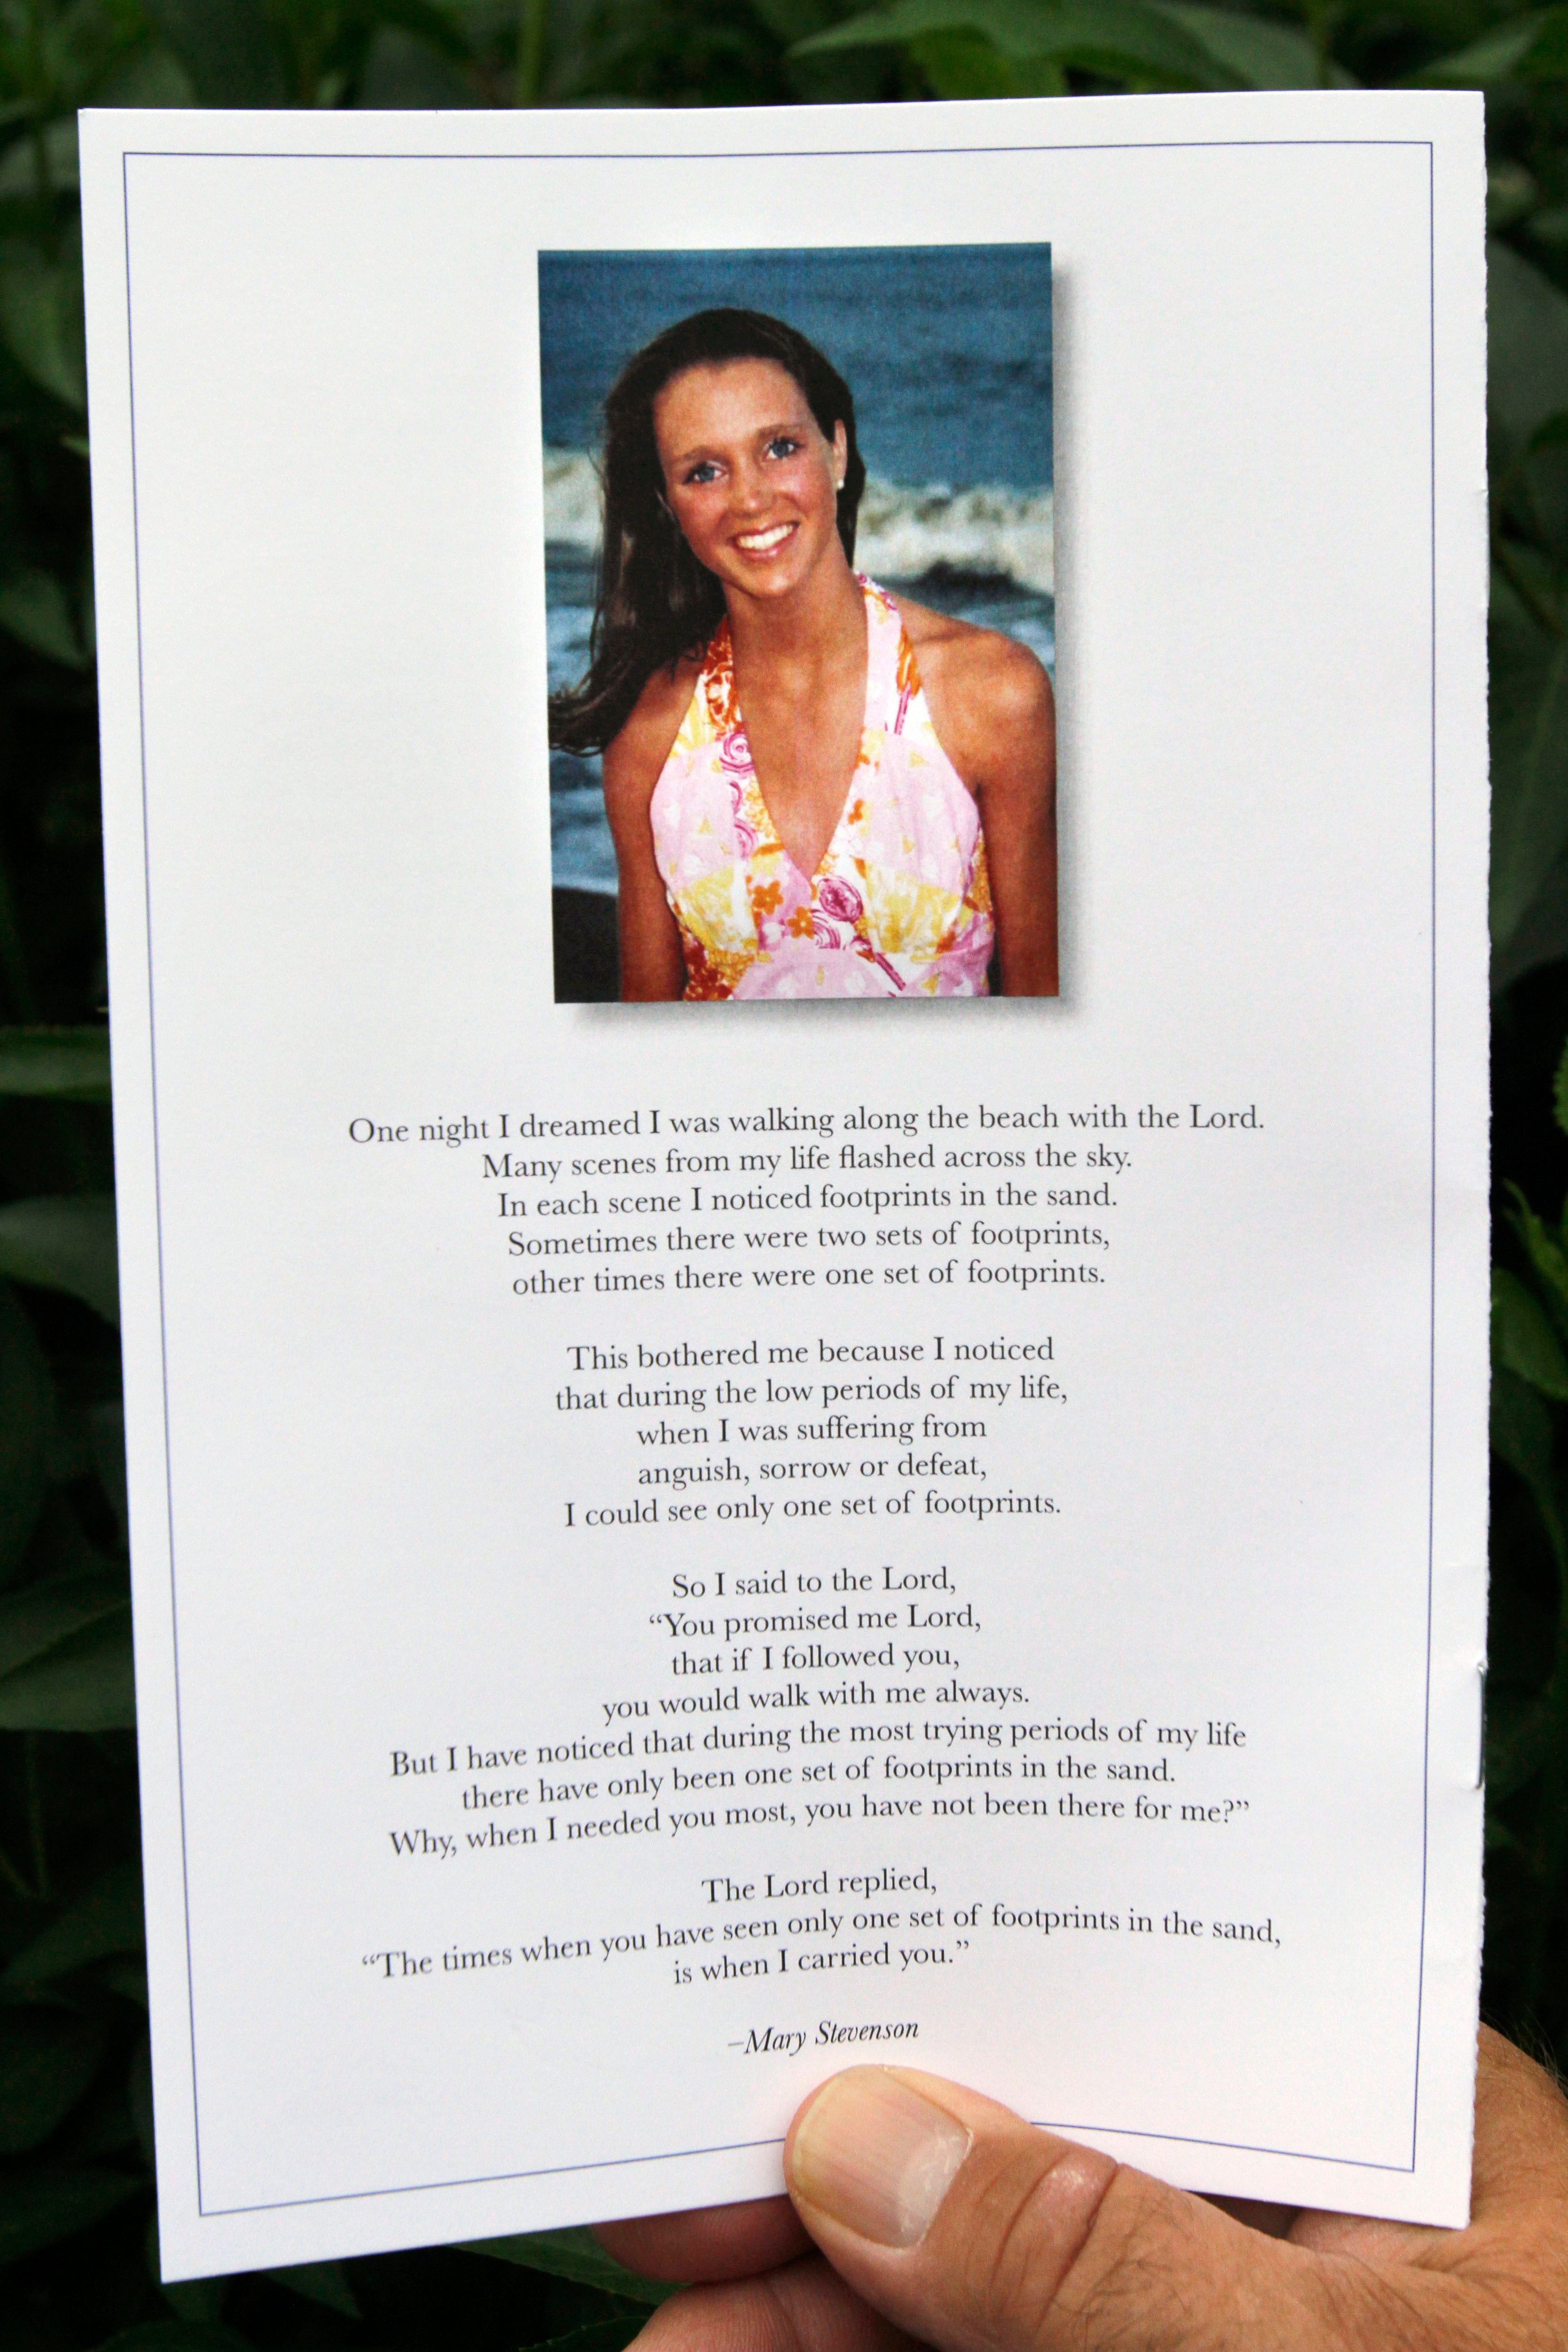 One night I dreamed I was walking along the beach with the Lord.
Many scenes from my life flashed across the sky.
In each scene I noticed footprints in the sand.
Sometimes there were two sets of footprints,
other times there were one set of footprints.
This bothered me because I noticed
that during the low periods of my life,
when I was suffering from
anguish, sorrow or defeat,
I could see only one set of footprints.
So I said to the Lord,
“You promised me Lord,
that if I followed you,
you would walk with me always.
But I have noticed that during the most trying periods of my life
there have only been one set of footprints in the sand.
Why, when I needed you most, you have not been there for me?”
The Lord replied,
“The times when you have seen only one set of footprints in the sand,
is when I carried you.”
–Mary Stevenson